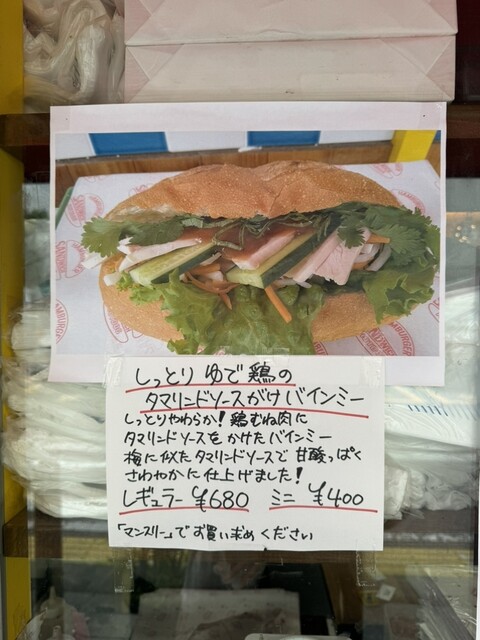 しっとり ゆで鶏の
タマリンドソースがけバインミー
しっとりやわらか!鶏むね肉に
タマリンドソースをかけたバインミー
梅に似たタマリンドソースで 甘酸っぱく
さわやかに仕上げました!
レギュラー ¥680 ミニ ¥400
「マンスリー」でお買い求めください